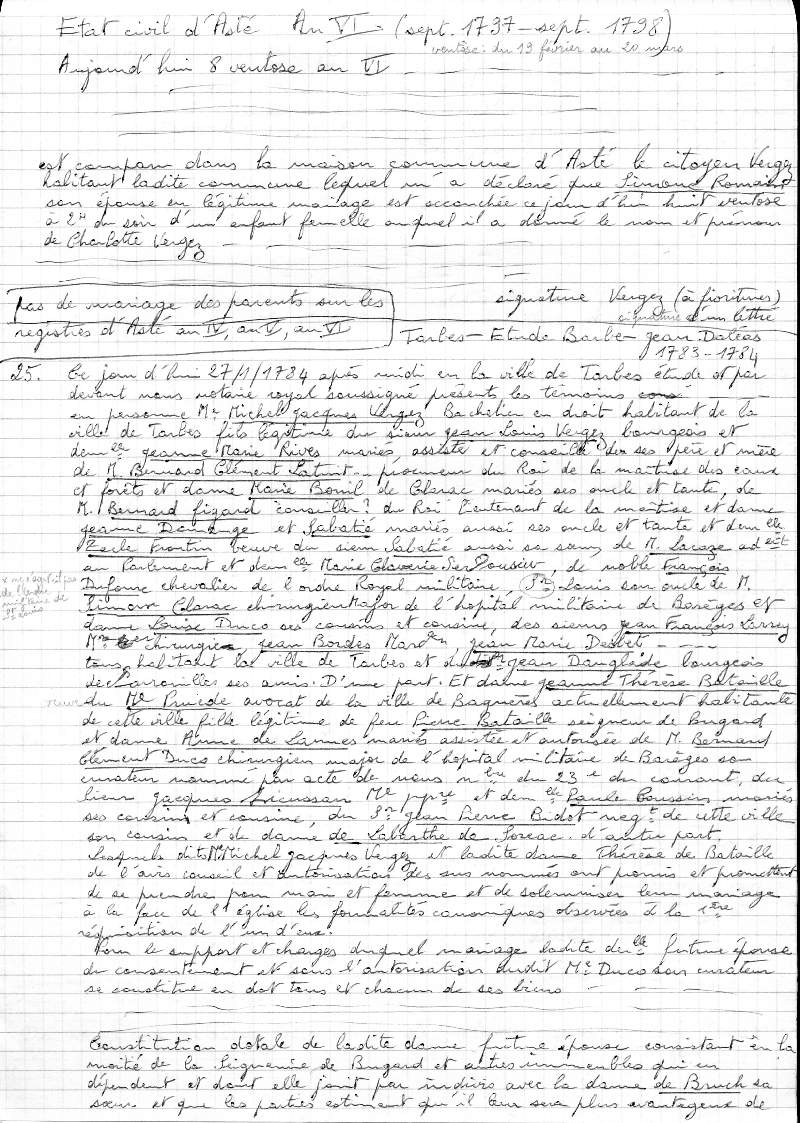 Etat civil d'Asté An VI - (sept. 1797 - sept. 1798)
ventôse : du 19 février au 20 mars
Aujourd'hui 8 ventose an VI
est comparu dans la maison commune d'Asté le citoyen Vergez
habitant ladite commune lequel m'a déclaré que Simone Romain
son épouse en légitime mariage est accouchée ce jour d'hui huit ventose
à 2H du soir d'un enfant femelle auquel il a donné le nom et prénom
de Charlotte Vergez
pas de mariage des parents sur les
registres d'Asté an IV, an V, an VI
signature Vergez (à fioritures)
signature d'un lettré
Tarbes - Etude Barbe - Jean Daléas
1783-1784
25. Ce jour d'hui 27/1/1784 après midi en la ville de Tarbes étude et par
devant nous notaire royal soussigné présents les témoins
en personne Mr Michel Jacques Vergez Bachelier en droit habitant de la
ville de Tarbes fils légitime du sieur Jean Louis Vergez bourgeois et
demlle Jeanne Marie Rives mariés, assisté et conseillé de ses père et mère
de M. Bernard Clément Latuit procureur du Roi de la maitrise des eaux
et forêts et dame Marie Bonil de Clarac mariés ses oncle et tante, de
M. Bernard figarol conseiller? du Roi lieutenant de la maitrise et dame
Jeanne Daulange et Sabatié mariés aussi ses oncle et tante et demlle
Frontin veuve du sieur Sabatié aussi sa soeur, de M. Lacaze ad
au Parlement et demlle Marie Claverie Ser Pousieu, de noble François
Dufourc chevalier de l'ordre Royal militaire, St Louis son oncle de M.
x ne s'agit-il pas
de l'ordre
militaire de
St Louis
Simon Clarac chirurgien Major de l'hopital militaire de Barèges et
dame Louise Duco ses cousins et cousine, des sieurs Jean François Larrey
Me chirurgien, Jean Bordes Marcd, Jean Marie Desbet
tous habitant la ville de Tarbes et du Jean Danglade bourgeois
de Larrouilles ses amis. D'une part. Et dame Jeanne Thérèse Bataille
veuve du Me Pruède avocat de la ville de Bagnères actuellement habitante
de cette ville fille légitime de feu Pierre Bataille seigneur de Bugard
et dame Anne de Lannes mariés assistée et autorisée de M. Bernard
Clément Duco chirurgien major de l'hopital militaire de Barèges son
curateur nommé par acte de nous nre du 23e du courant, du
sieur Jacques Me ppre et demlle Paule Coussin mariés
ses cousins et cousine, du Sr Jean Pierre Bidot negt de cette ville
son cousin et de dame de Labarthe de Soréac. d'autre part.
Lesquels dits Mr Michel Jacques Vergez et ladite dame Thérèse de Bataille
de l'avis conseil et autorisation des sus nommés ont promis et promettent
de se prendre pour mari et femme et de solemniser leur mariage
à la face de l'église les formalités canoniques observées à la 1ère
réquisition de l'un d'eux.
Pour le support et charges duquel mariage ladite delle future épouse
du consentement et sous l'autorisation dudit Mr Duco son curateur
se constitue en dot tous et chacun de ses biens
Constitution dotale de ladite dame future épouse consistant en la
moitié de la Seigneurie de Bugard et autres immeubles qui en
dépendent et dont elle jouit par indivis avec la dame de Bruch sa
soeur et que les parties estiment qu'il leur sera plus avantageux de